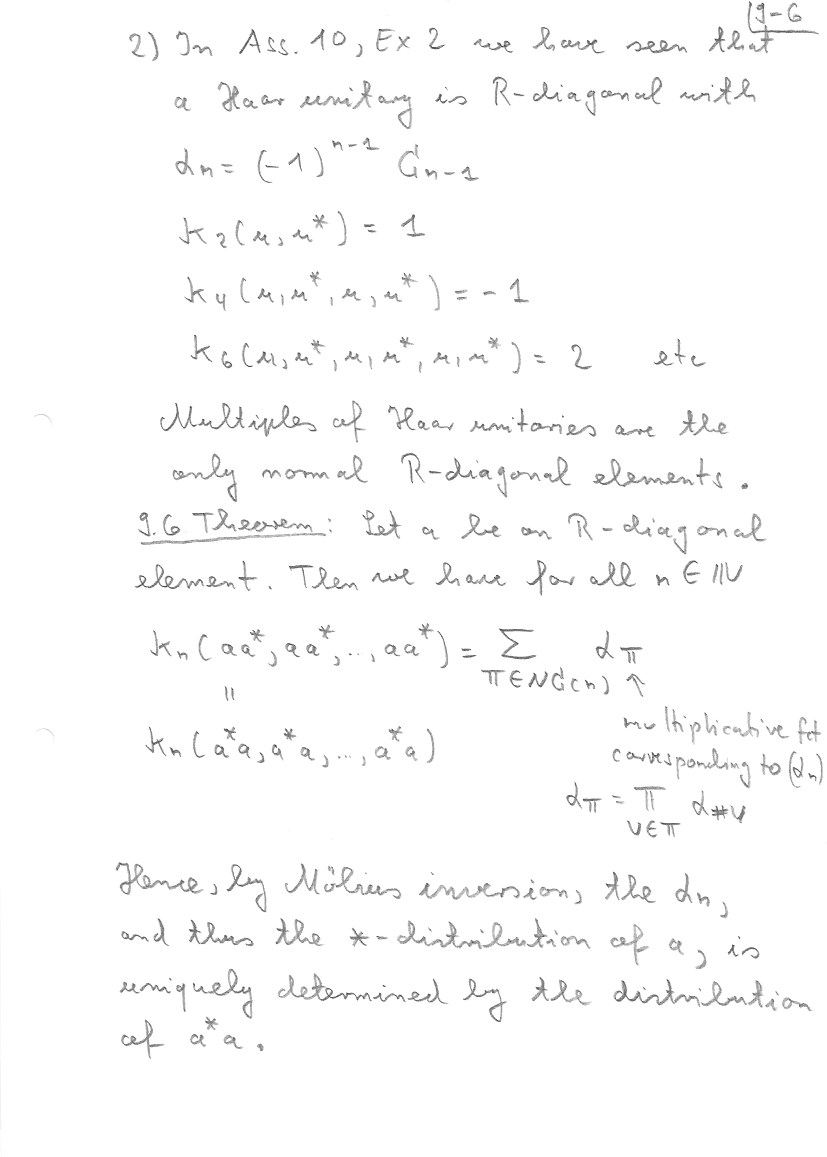 9-6
2) In Ass. 10, Ex 2 we have seen that
a Haar unitary is R-diagonal with
αₙ = (-1)ⁿ⁻¹ Cₙ₋₁
k₂(u, u*) = 1
k₄(u, u*, u, u*) = -1
k₆(u, u*, u, u*, u, u*) = 2 etc
Multiples of Haar unitaries are the
only normal R-diagonal elements.
9.6 Theorem: Let a be an R-diagonal
element. Then we have for all n ∈ ℕ
kₙ(aa*, aa*, .., aa*) = Σ α_π
π∈NC(n) ↑
||
multiplicative fct
kₙ(a*a, a*a, ..., a*a)
corresponding to (αₙ)
α_π = Π α_#V
V∈π
Hence, by Möbius inversion, the αₙ,
and thus the *-distribution of a, is
uniquely determined by the distribution
of a*a.